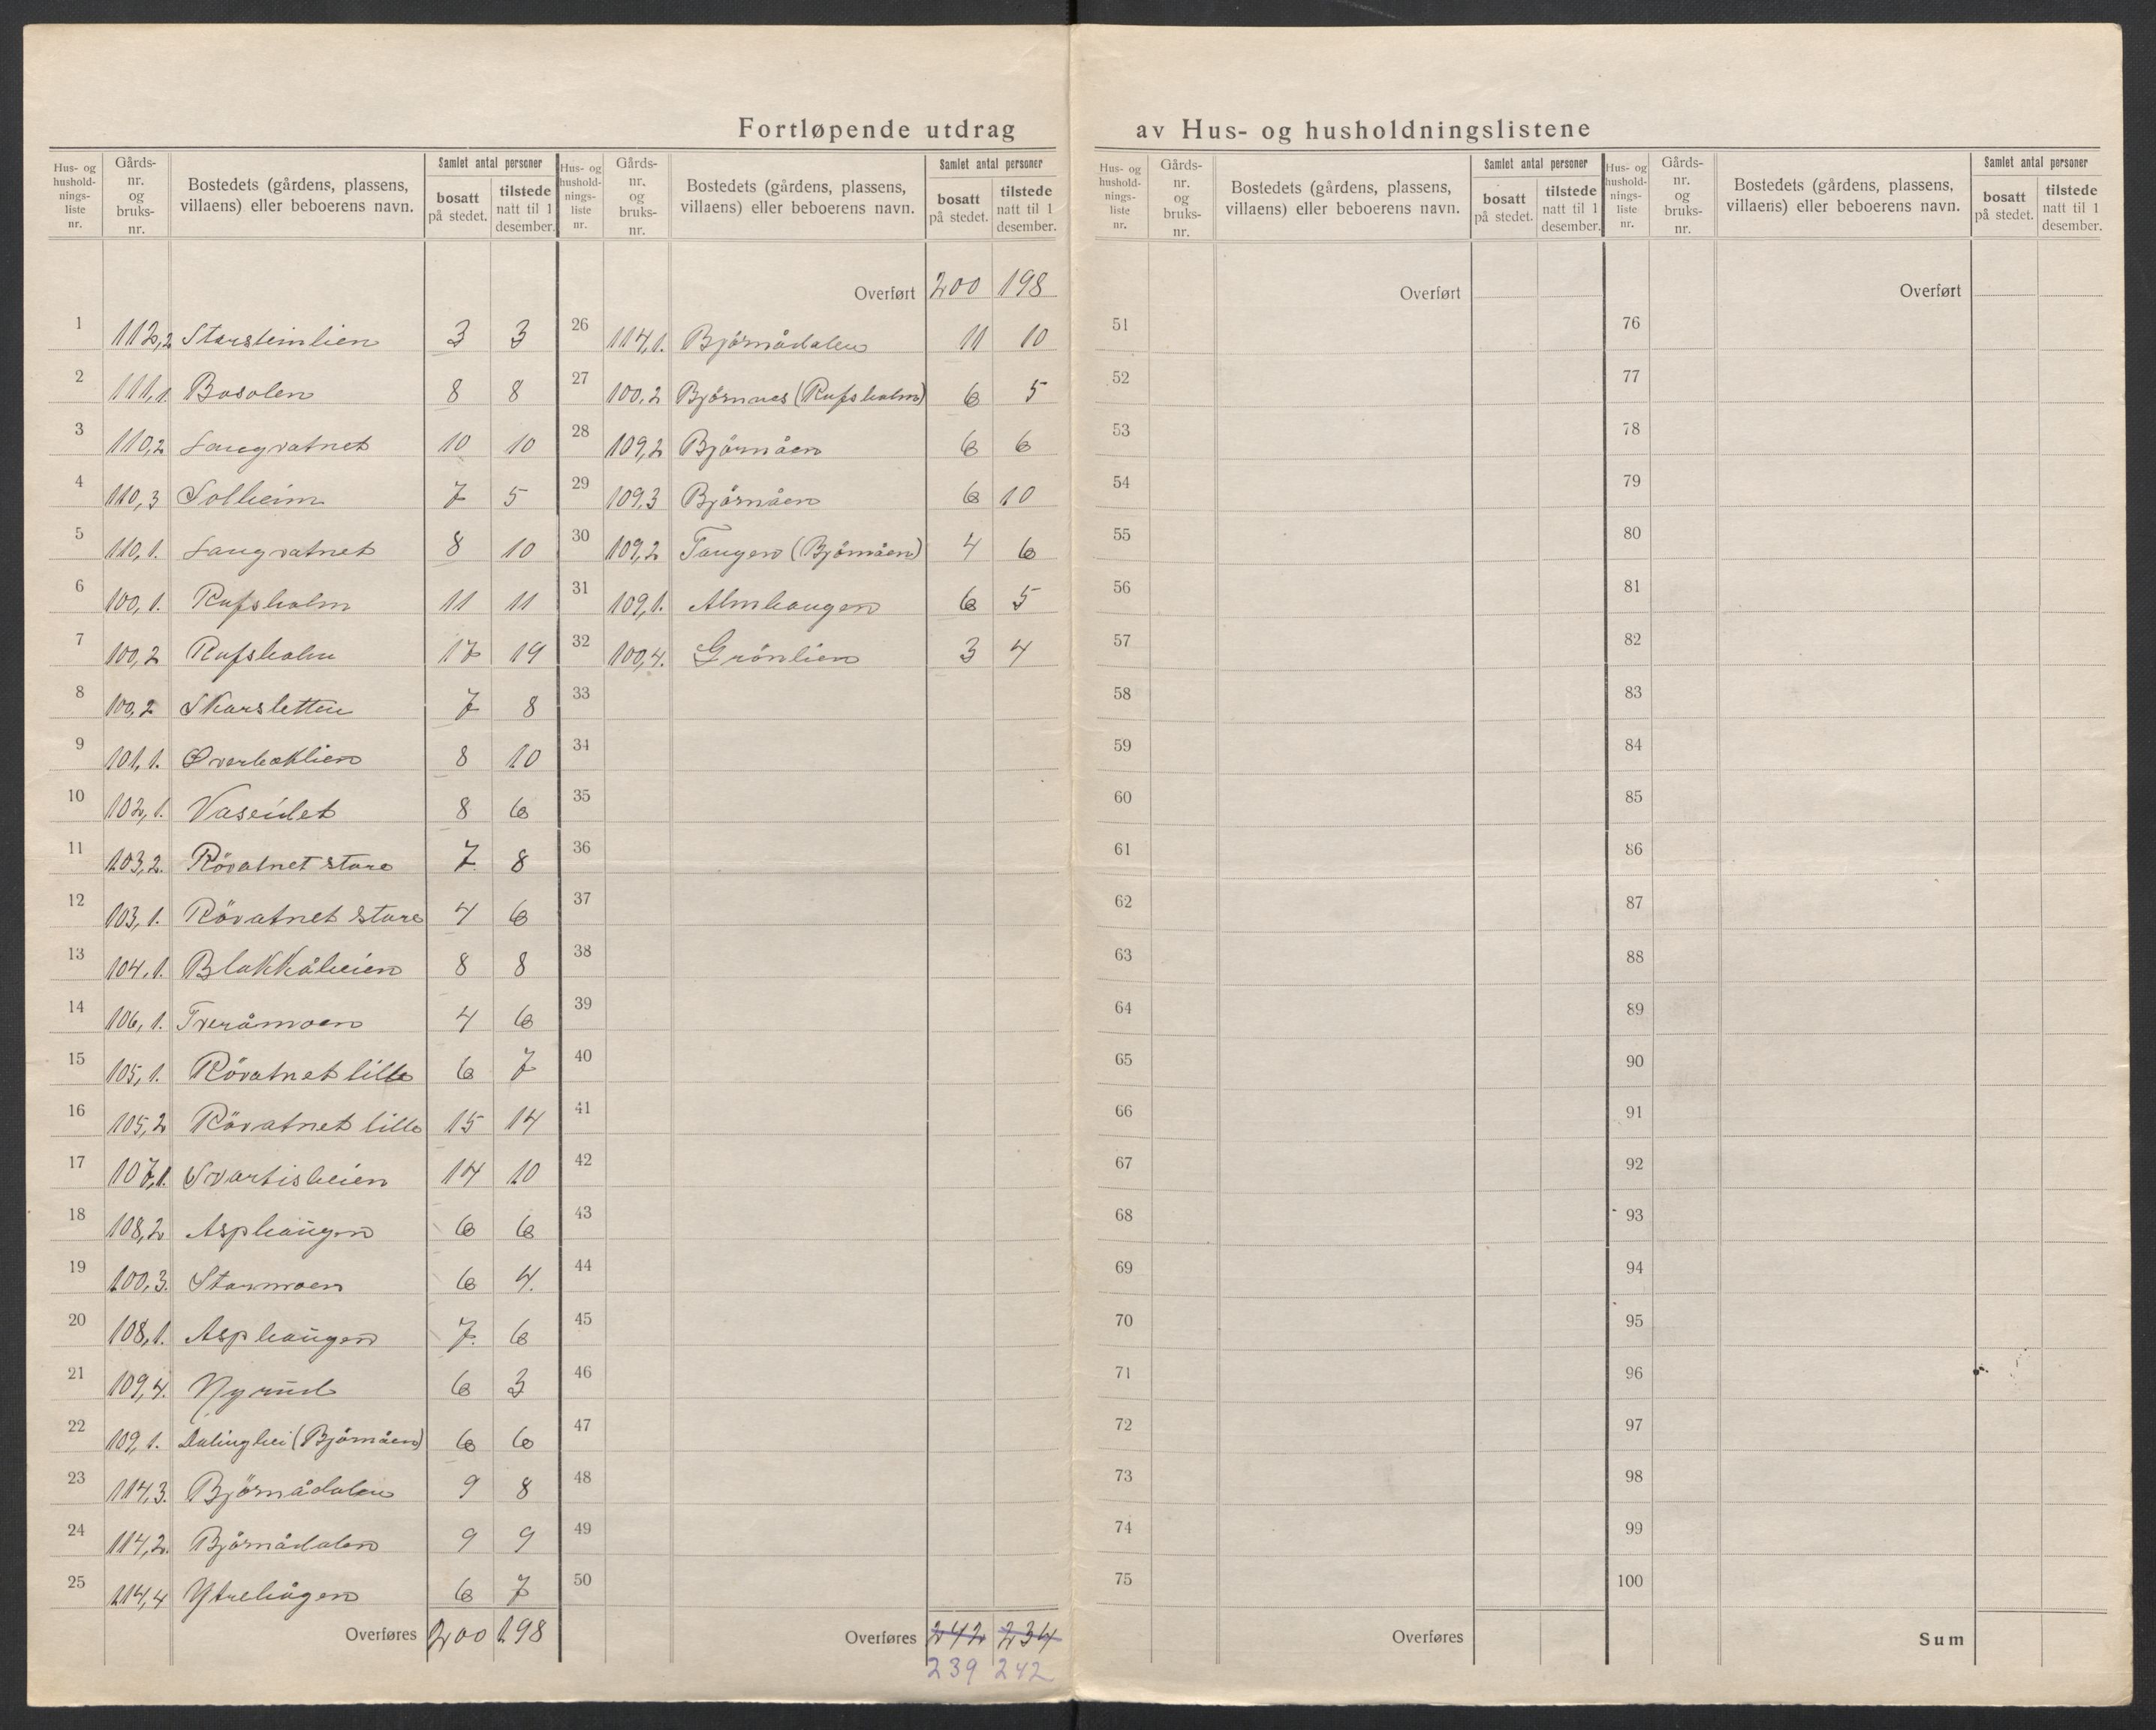 Fortløpende utdrag av Hus- og husholdningslistene
Hus- og husholdnings-liste nr. | Gårds-nr. og bruks-nr. | Bostedets (gårdens, plassens, villaens) eller beboerens navn. | Samlet antal personer | bosatt på stedet. | tilstede natt til 1 desember.
1 112,2 Storsteinlien 3 3
2 111,1. Bosolen 8 8
3 110,2 Langvatnet 10 10
4 110,3 Solheim 7 5
5 110,1. Langvatnet 8 10
6 100,1. Rufsholm 11 11
7 100,2 Rufsholm 17 19
8 100,2 Skarsletten 7 8
9 101,1. Øverbeklien 8 10
10 102,1. Vaseidet 8 6
11 103,2. Rövatnet store 7 8
12 103,1. Rövatnet store 4 6
13 104,1. Blakkåheien 8 8
14 106,1. Tveråmoen 4 6
15 105,1. Rövatnet lille 6 7
16 105,2 Rövatnet lille 15 14
17 107,1. Svartisheien 14 10
18 108,2 Asphaugen 6 6
19 100,3. Stormoen 6 4.
20 108,1. Asphaugen 7. 6
21 109,4. Nyrud 6 3
22 109,1. (Björnåen) 6 6
23 114,3. Björnådalen 9 8
24 114,2. Björnådalen 9 9
25 114,4 Ytrehågen 6 7
Overføres 200 198
Hus- og husholdnings-liste nr. | Gårds-nr. og bruks-nr. | Bostedets (gårdens, plassens, villaens) eller beboerens navn. | Samlet antal personer | bosatt på stedet. | tilstede natt til 1 desember.
Overført 200 198
26 114,1. Björnådalen 11 10
27 100,2 Björnnes (Rufsholm) 6 5
28 109,2 Björnåen 6 6
29 109,3 Björnåen 6 10
30 109,2 Tangen (Björnåen) 4 6
31 109,1. Almhaugen 6 5
32 100,4. Grönlien 3 4
33
34
35
36
37
38
39
40
41
42
43
44
45
46
47
48
49
50
Overføres 242 234
239 242
Hus- og husholdnings-liste nr. | Gårds-nr. og bruks-nr. | Bostedets (gårdens, plassens, villaens) eller beboerens navn. | Samlet antal personer | bosatt på stedet. | tilstede natt til 1 desember.
Overført
51
52
53
54
55
56
57
58
59
60
61
62
63
64
65
66
67
68
69
70
71
72
73
74
75
Overføres
Hus- og husholdnings-liste nr. | Gårds-nr. og bruks-nr. | Bostedets (gårdens, plassens, villaens) eller beboerens navn. | Samlet antal personer | bosatt på stedet. | tilstede natt til 1 desember.
Overført
76
77
78
79
80
81
82
83
84
85
86
87
88
89
90
91
92
93
94
95
96
97
98
99
100
Sum